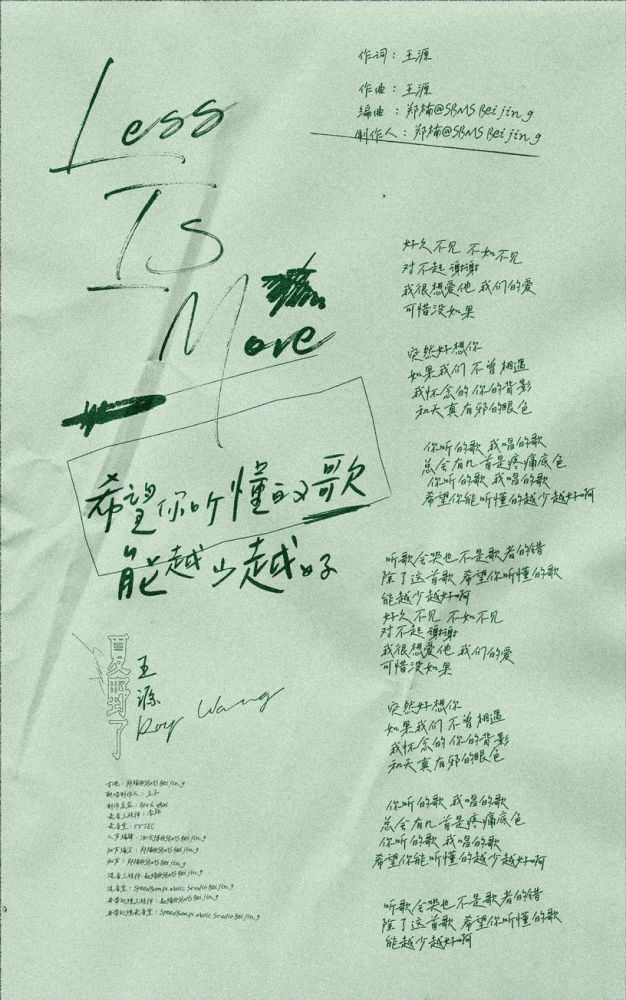 Less
Is
More
希望你听懂的歌
能越少越好
夏野了
王
源
Roy Wang
作词：王源
作曲：王源
编曲：郑楠@SBMS Beijing
制作人：郑楠@SBMS Beijing
好久不见 不如不见
对不起 谢谢
我很想爱他 我们的爱
可惜没如果
突然好想你
如果我们 不曾相遇
我怀念的 你的背影
和天真有邪的眼色
你听的歌 我唱的歌
总会有几首是疼痛底色
你听的歌 我唱的歌
希望你能听懂的越少越好啊
听歌会哭也不是歌者的错
除了这首歌 希望你听懂的歌
能越少越好啊
好久不见 不如不见
对不起 谢谢
我很想爱他 我们的爱
可惜没如果
突然好想你
如果我们 不曾相遇
我怀念的 你的背影
和天真有邪的眼色
你听的歌 我唱的歌
总会有几首是疼痛底色
你听的歌 我唱的歌
希望你能听懂的越少越好啊
听歌会哭也不是歌者的错
除了这首歌 希望你听懂的歌
能越少越好啊
吉他：郑楠@SBMS Beijing
配唱制作人：王子
和声编写：郑楠@SBMS Beijing
和声：郑楠@SBMS Beijing
混音室：SpeedBumps Music Studio Beijing
母带处理录音室：SpeedBumps Music Studio Beijing